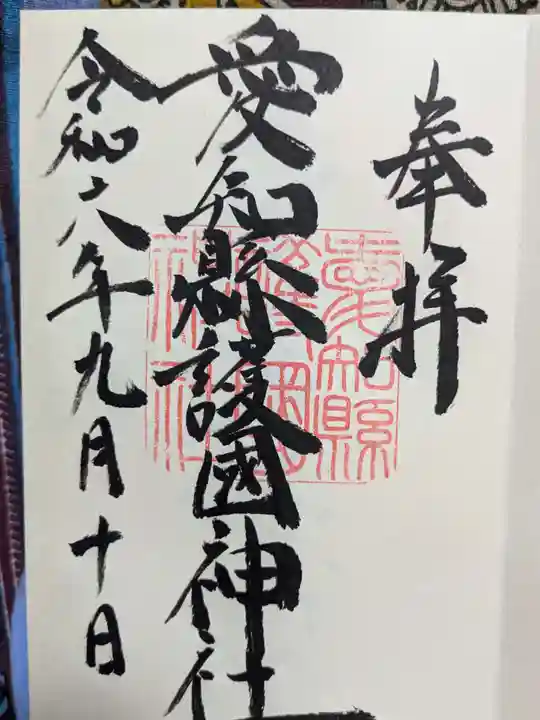 奉拝
愛知縣護國神社
愛知縣
護國
神社
令和六年九月十日